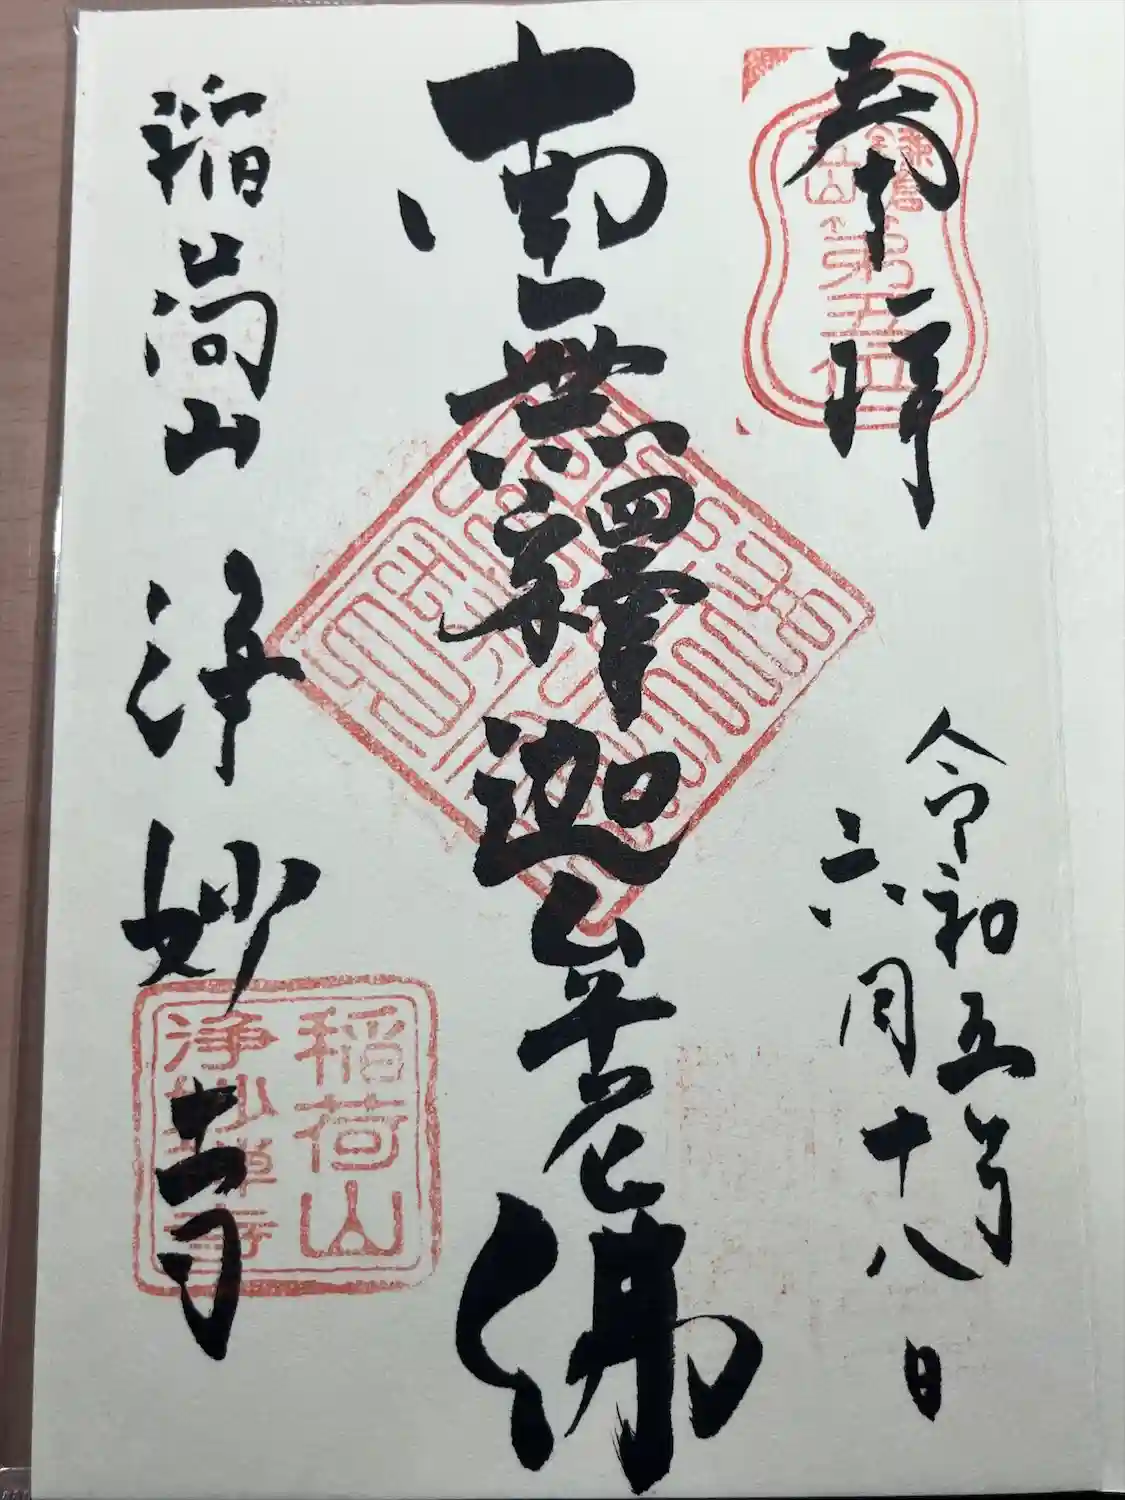 奉拝
鎌倉
五山
第五位
令和五年
六月十八日
南無釋迦牟尼佛
稲荷山 浄妙寺
稲荷山
浄妙禅寺